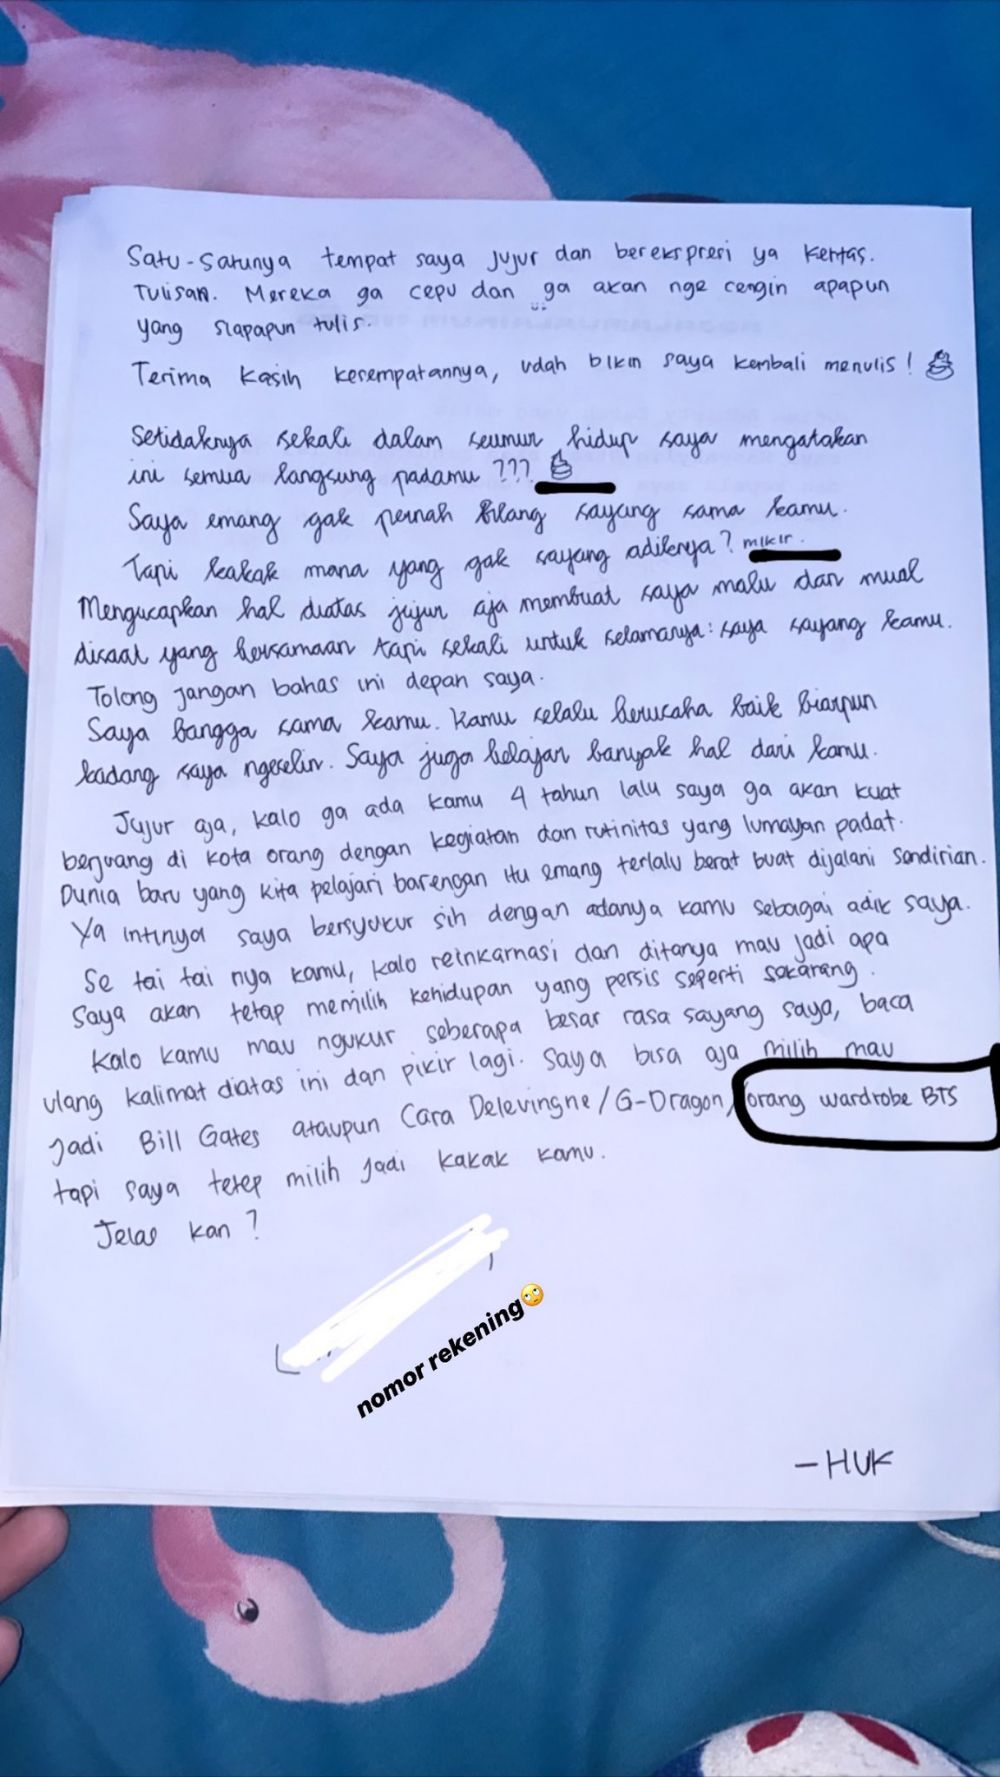 Satu-Satunya tempat saya jujur dan berekspresi ya kertas.
Tulisan. Mereka ga cepu dan ga akan nge cengin apapun
yang siapapun tulis.
Terima kasih kesempatannya, udah bikin saya kembali menulis!
Setidaknya sekali dalam seumur hidup saya mengatakan
ini semua langsung padamu ???
Saya emang gak pernah bilang sayang sama kamu.
Tapi kakak mana yang gak sayang adiknya? mikir.
Mengucapkan hal diatas jujur aja membuat saya malu dan mual
disaat yang bersamaan tapi sekali untuk selamanya: saya sayang kamu.
Tolong jangan bahas ini depan saya.
Saya bangga sama kamu. Kamu selalu berusaha baik biarpun
kadang saya ngeselin. Saya juga belajar banyak hal dari kamu.
Jujur aja, kalo ga ada kamu 4 tahun lalu saya ga akan kuat
berjuang di kota orang dengan kegiatan dan rutinitas yang lumayan padat.
Dunia baru yang kita pelajari barengan itu emang terlalu berat buat dijalani sendirian.
Ya intinya saya bersyukur sih dengan adanya kamu sebagai adik saya.
Se tai tai nya kamu, kalo reinkarnasi dan ditanya mau jadi apa
Saya akan tetap memilih kehidupan yang persis seperti sekarang.
Kalo kamu mau ngukur seberapa besar rasa sayang saya, baca
ulang kalimat diatas ini dan pikir lagi. Saya bisa aja milih mau
jadi Bill Gates ataupun Cara Delevingne/G-Dragon/orang wardrobe BTS
tapi saya tetep milih jadi kakak kamu.
Jelas kan?
nomor rekening🙄
—HUK